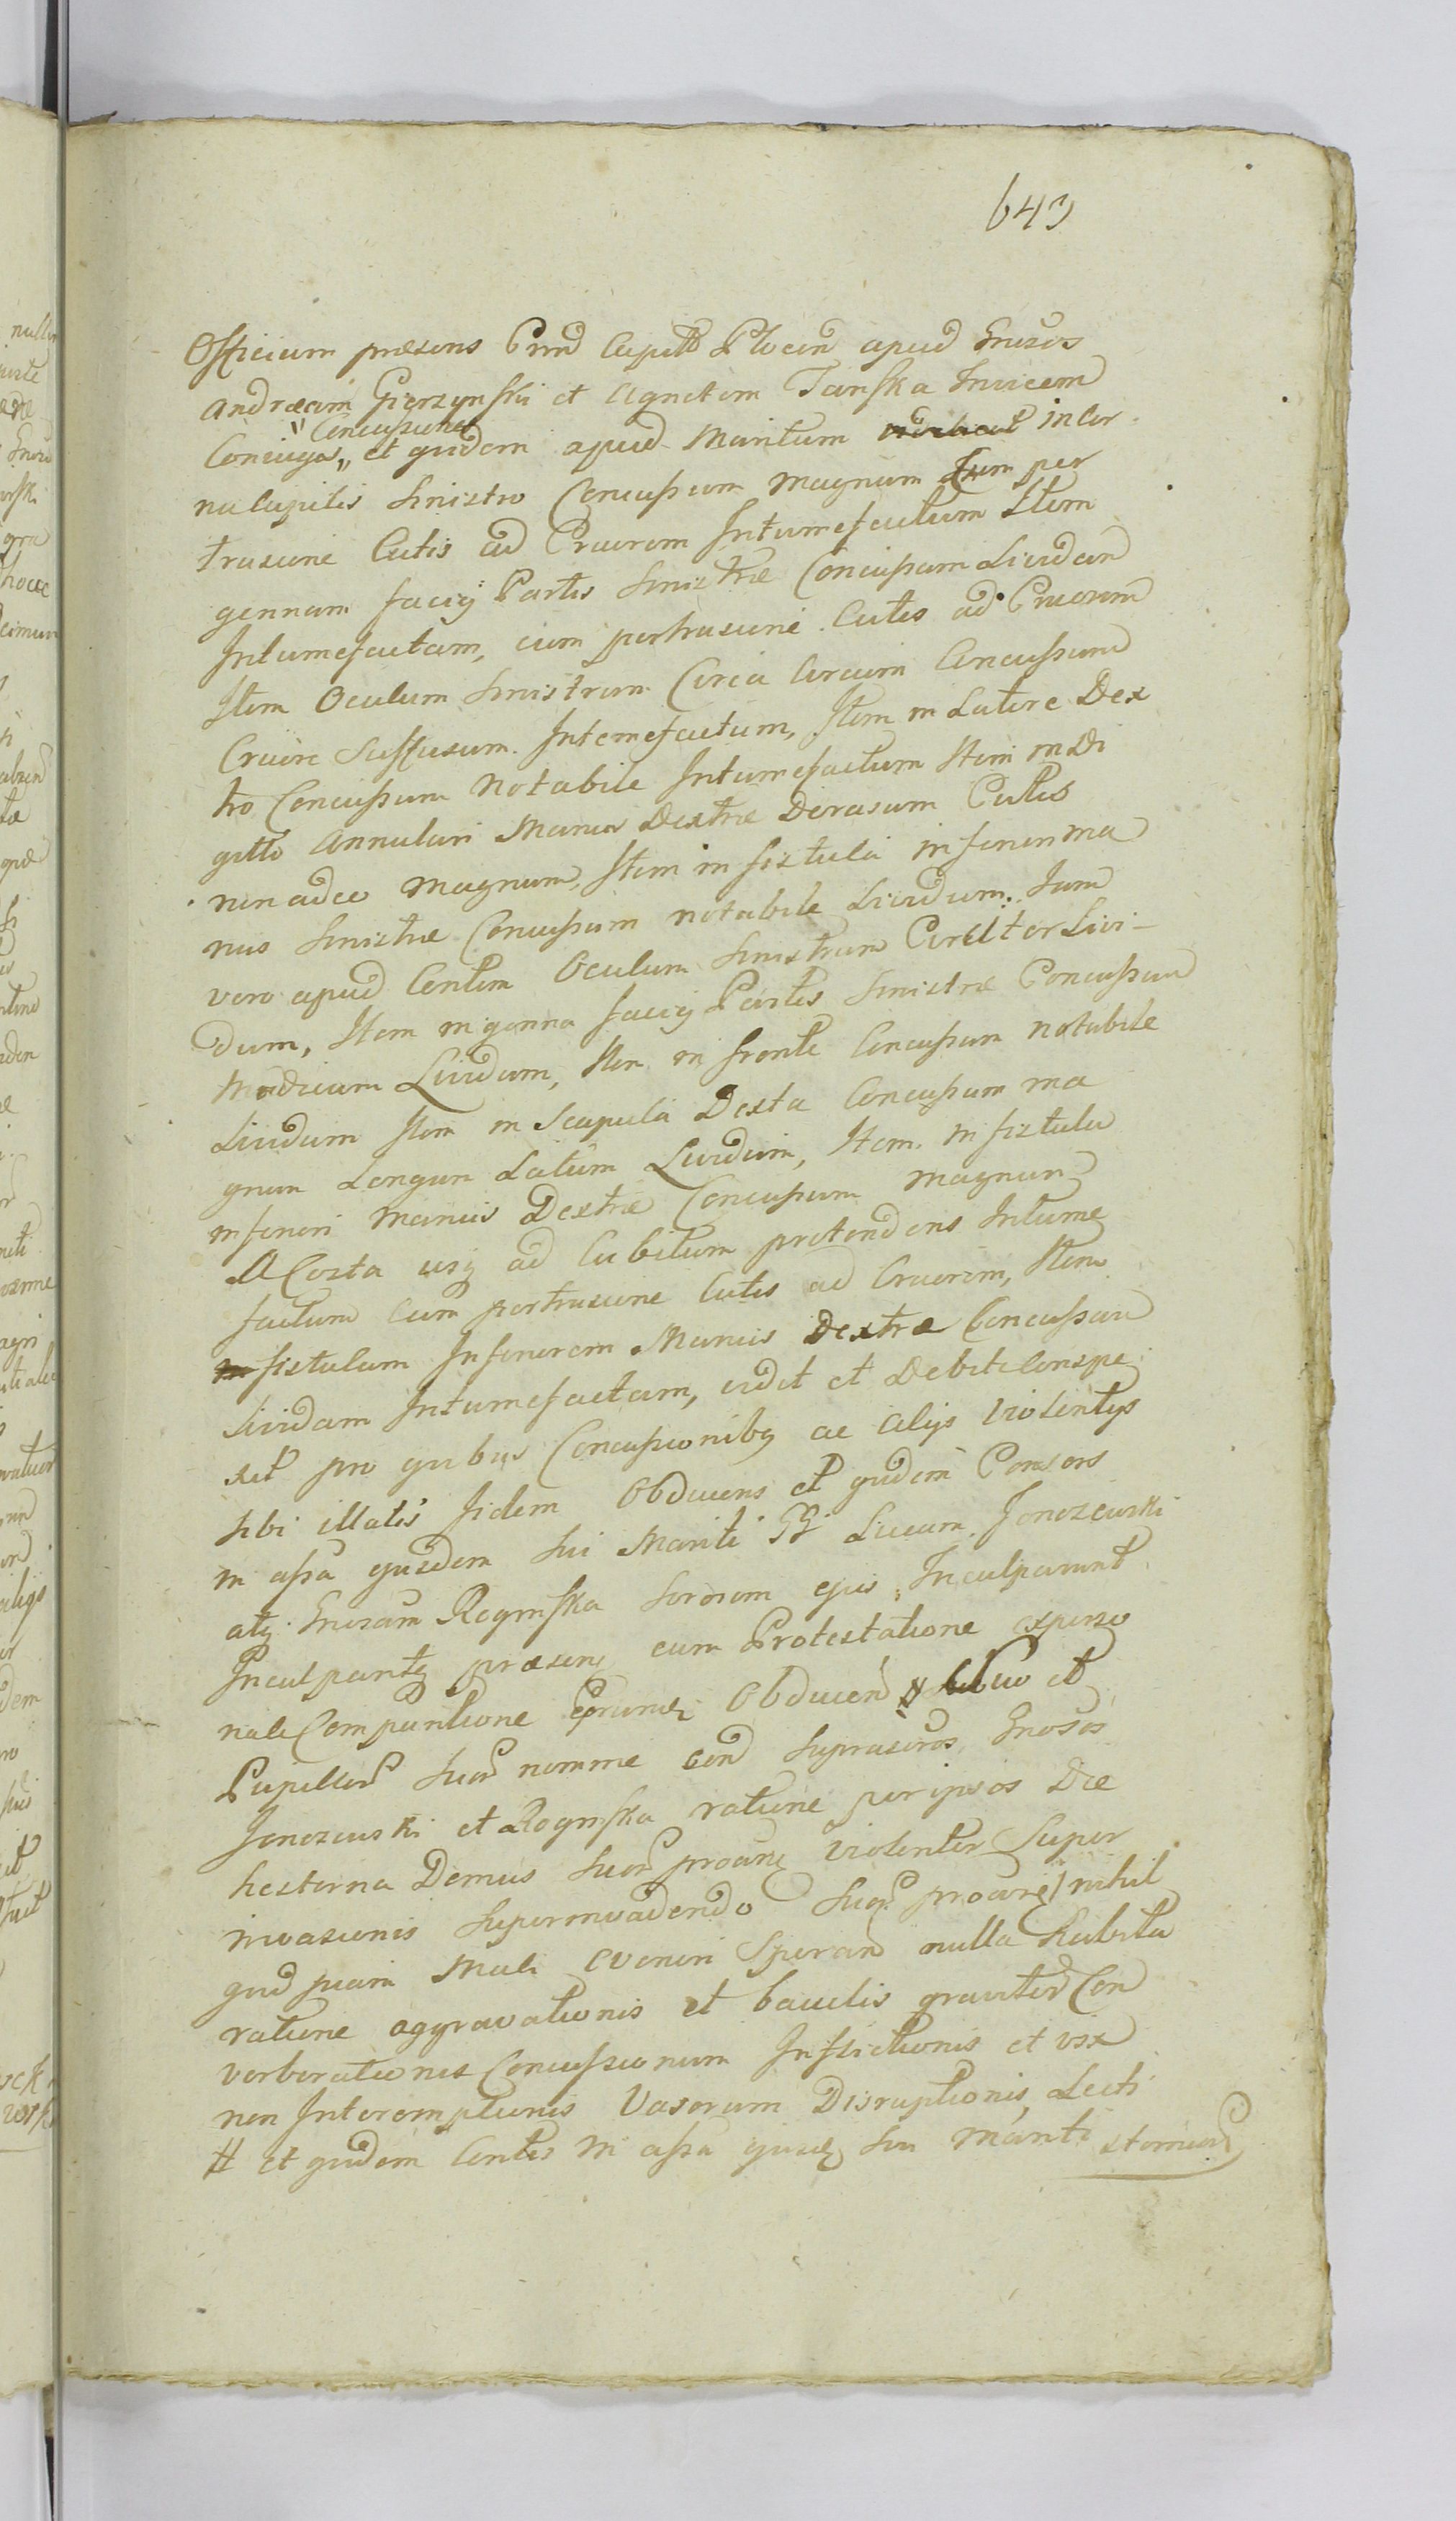 643
Officium præsens Prnd Capitti Plocen apud Gnrosos
Andream Gierzynski et Agnetem Tanska Invicem
Concussiones
Coniuges et quidem apud Maritum in Cor
nu Capitis Sinistro Concussum magnum Cum per
trusione Cutis ad Cruorem Intumefactum Item
gennam faciej Partis Sinistræ Concussam Lividam
Intumefactam, cum pertrusione Cutis ad Cruorem
Item Oculum Sinistrum Circa Circum Concussum
Cruore Suffusum Intumefactum, Item in Latere Dex
tro Concussum Notabile Intumefactum Item in Di
gitto Annulari Manus Dextræ Derasum Cutis
non adeo magnum, Item in fistula inferiori ma
nus Sinistræ Concussum notabile Lividum. Iam
vero apud Contem Oculum Sinistrum Circiter Livi-
dum, Item in genna faciej Partis Sinistræ Concussum
Modicum Lividum, Item in fronte Concussum notabile
Lividum Item in Scapula Dexta Concussum ma
gnum Longum Latum Lividum, Item in fistula
inferiori manus Dextræ Concussum magnum
A Costa usq ad Cubitum protendens Intume
factum Cum pertrusione Cutis ad Cruorem, Item
fistulam Inferiorem Manus Dextræ Concussam
Lividam Intumefactam, vidit et Debite Conspe
xit pro quibus Concussionibq ac alijs violentijs
sibi illatis Iidem Obducens et quidem Consors
in assa ejusdem sui Mariti GG Lucam Jonczewski
atq Gnrosam Rogowska Sororem ejus Inculparunt
Inculpantq præsenq cum Protestatione experso
nali Comparitione Eorumdq Obducen suo et
Pupillor suor nomine con Suprascros Gnrosos
Jonczewski et Rogowska ratione per ipsos Die
hesterna Domus suor proanq violenter Super
invasionis Superinvadendo Suor proanq nihil
quidpiam Mali Evenire Speran nulla habita
ratione aggravationis et baculis graviter Con
verberationis Concussionum Inflictionis et vix
non Interemptionis Vasorum Disruptionis, Lecti
# et quidem Contis in assa ejusdq sui Mariti sternior